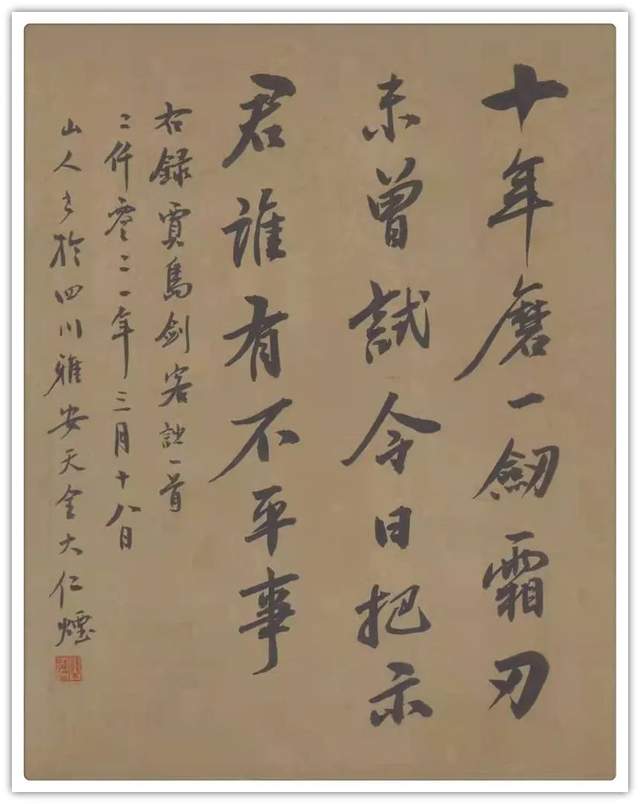 十年磨一劔霜刃
未曾試今日把示
君誰有不平事
右録賈島劍客詩一首
二仟零二一年三月十八日
山人書於四川雅安天全大仁煙